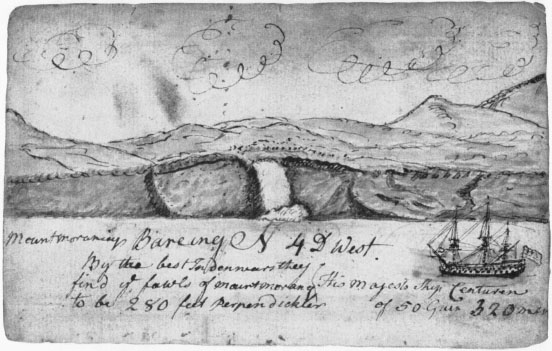 Mountmorancy Bareing N 4 D West.
By the best Indennears they
find ye fawls of mauntmoranc
to be 280 feet Perpendickler
His Majes Ship Centuren
of 50 Guin 320 men